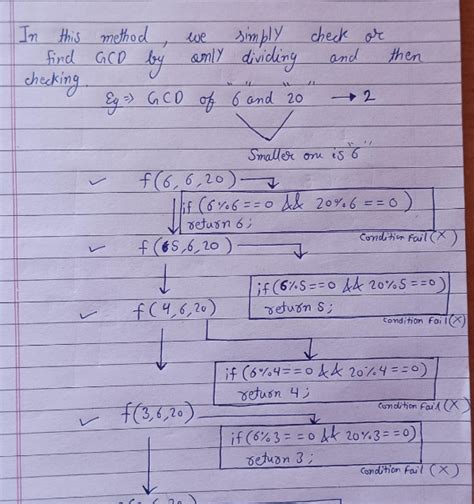 In this method, we simply check or
find GCD by only dividing and then
checking.
Eg => GCD of "6" and "20" → 2
Smaller one is "6"
✓ f(6,6,20)
if (6%6==0 && 20%6==0)
return 6;
Condition Fail (X)
✓ f(5,6,20)
if (6%5==0 && 20%5==0)
return 5;
Condition Fail (X)
✓ f(4,6,20)
if (6%4==0 && 20%4==0)
return 4;
Condition Fail (X)
✓ f(3,6,20)
if (6%3==0 && 20%3==0)
return 3;
Condition Fail (X)